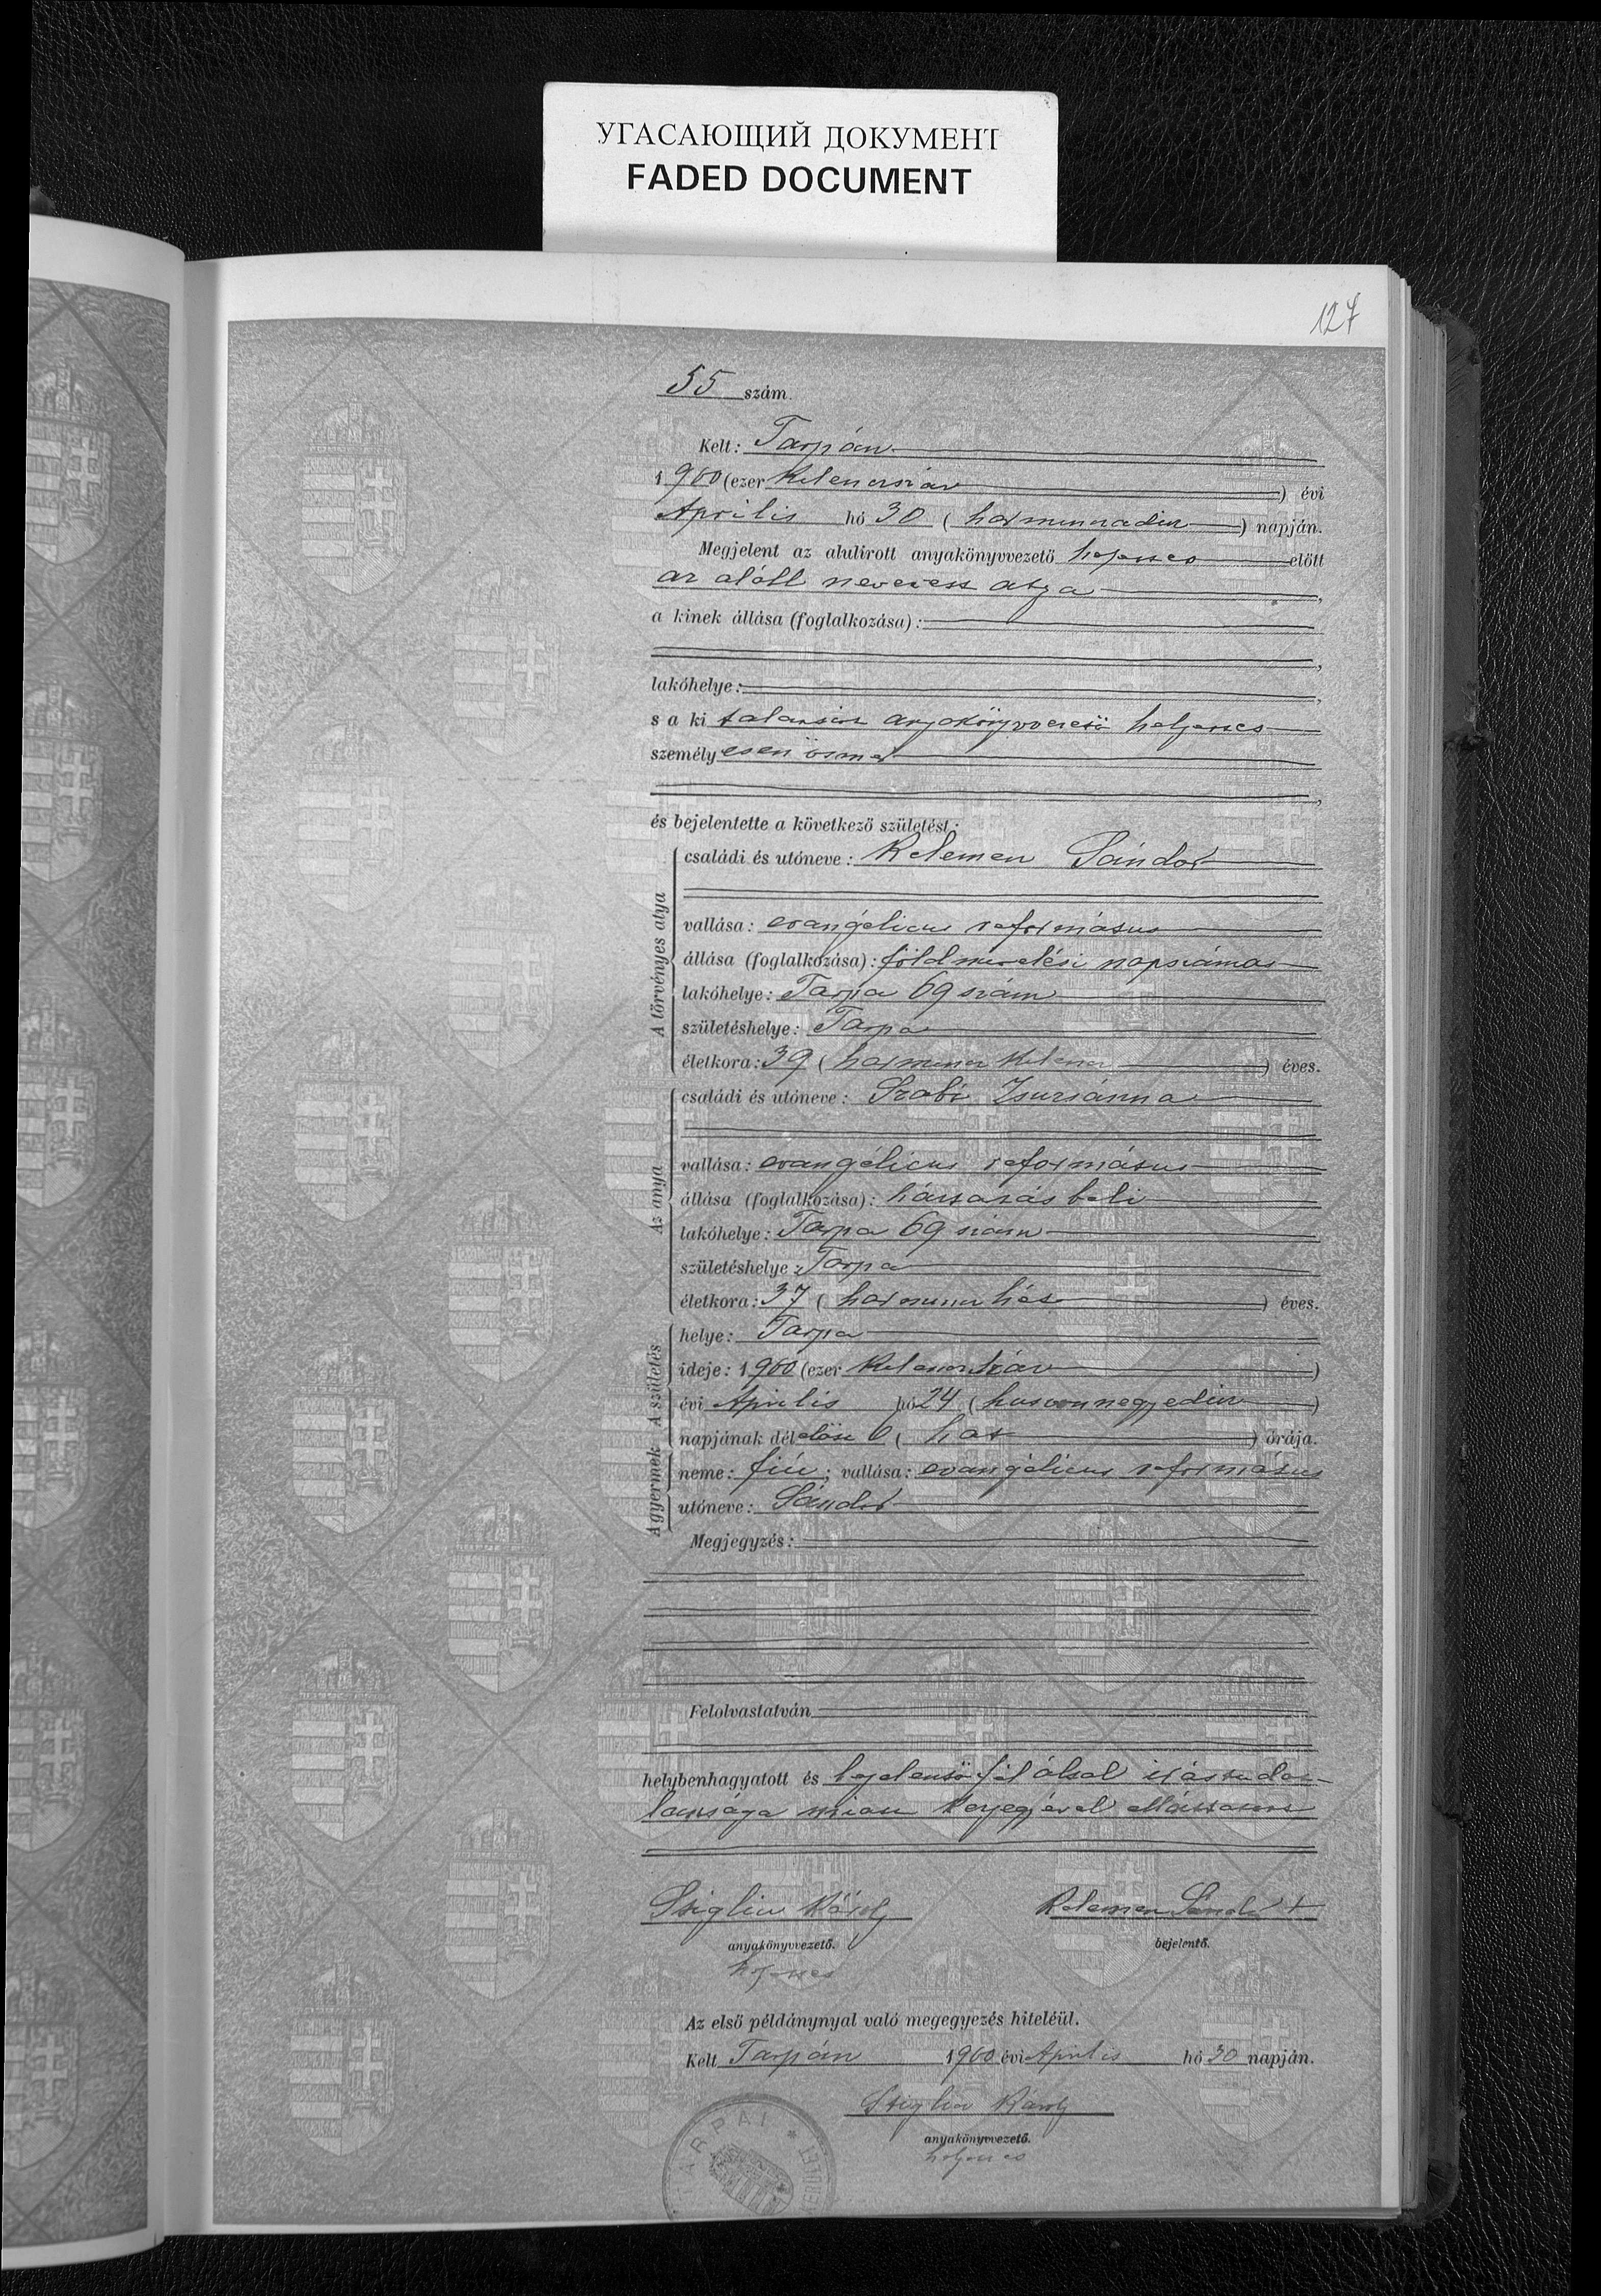 УГАСАЮЩИЙ ДОКУМЕНТ
FADED DOCUMENT
127
55 szám.
Kelt: Tarpán
1900 (ezer kilenczszáz) évi
Április hó 30 (harminczadik) napján.
Megjelent az alulirott anyakönyvvezető helyettes előtt
az alább nevezett atya,
a kinek állása (foglalkozása):
lakóhelye:
s a ki anyakönyvvezető helyettes
személyesen ösmer
és bejelentette a következő születést:
A törvényes atya
családi és utóneve: Kelemen Sándor
vallása: evangélicus református
állása (foglalkozása): földmivelési napszámos
lakóhelye: Tarpa 69 szám
születéshelye: Tarpa
életkora: 39 (harmincz kilencz) éves.
Az anya
családi és utóneve: Szabó Zsuzsánna
vallása: evangélicus református
állása (foglalkozása): háztartásbeli
lakóhelye: Tarpa 69 szám
születéshelye: Tarpa
életkora: 37 (harmincz hét) éves.
A születés
helye: Tarpa
ideje: 1900 (ezer kilenczszáz)
évi Április hó 24 (huszonnegyedik)
napjának délelőtt 6 (hat) órája.
A gyermek
neme: fiú; vallása: evangélicus református
utóneve: Sándor
Megjegyzés:
Felolvastatván
helybenhagyatott és bejelentő fél által irástudat-
lansága miatt kézjegyével elláttatott
Stiglicz Károly
Kelemen Sándor +
anyakönyvvezető.
bejelentő.
helyettes
Az első példánynyal való megegyezés hiteléül.
Kelt Tarpán 1900 évi Április hó 30 napján.
Stiglicz Károly
anyakönyvvezető.
helyettes
TARPAI *